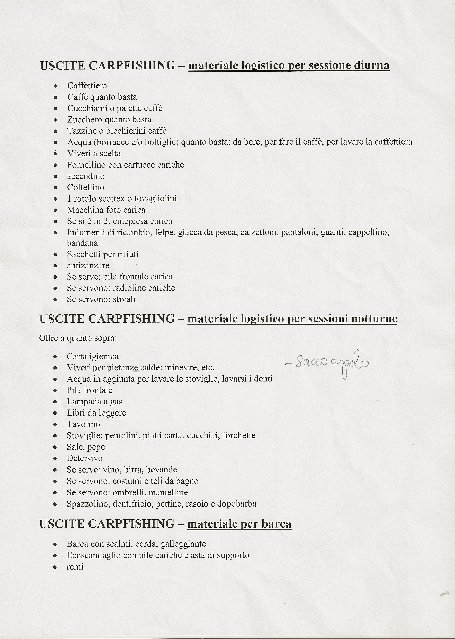 USCITE CARPFISHING – materiale logistico per sessione diurna
Caffettiera
Caffè quanto basta
Cucchiaini o palette caffè
Zucchero quanto basta
Tazzine o bicchierini caffè
Acqua (borracce e/o bottiglie) quanto basta: da bere, per fare il caffè, per lavare la caffettiera
Viveri a scelta
Fornellino con cartucce cariche
accendino
Coltellino
1 rotolo scottex o tovagliolini
Macchina foto carica
Se si è in 2: carica
Indumenti di ricambio, felpe, giacca da pesca, calzettoni, pantaloni, guanti, cappellino,
bandana
Sacchetti per rifiuti
Se serve: pila frontale carica
Se servono: radioline cariche
Se servono: stivali
USCITE CARPFISHING – materiale logistico per sessioni notturne
Oltre a quanto sopra:
Carta igienica
Viveri per pietanze calde: minestre, etc.
Acqua in aggiunta per lavare le stoviglie, lavarsi i denti
Pila frontale
Lampada a gas
Libri da leggere
Tavolino
Stoviglie: pentolini, piatti carta, cucchiai, forchette
Sale, pepe
Detersivo
Se serve: vino, birra, bevande
Se servono: costumi e teli da bagno
Se servono: ombrelli, mantelline
Spazzolino, dentifricio, pettine, rasoio e dopobarba
USCITE CARPFISHING – materiale per barca
Barca con scalmi, corda, galleggiante
Ecoscandaglio con pile cariche e asta di supporto
remi